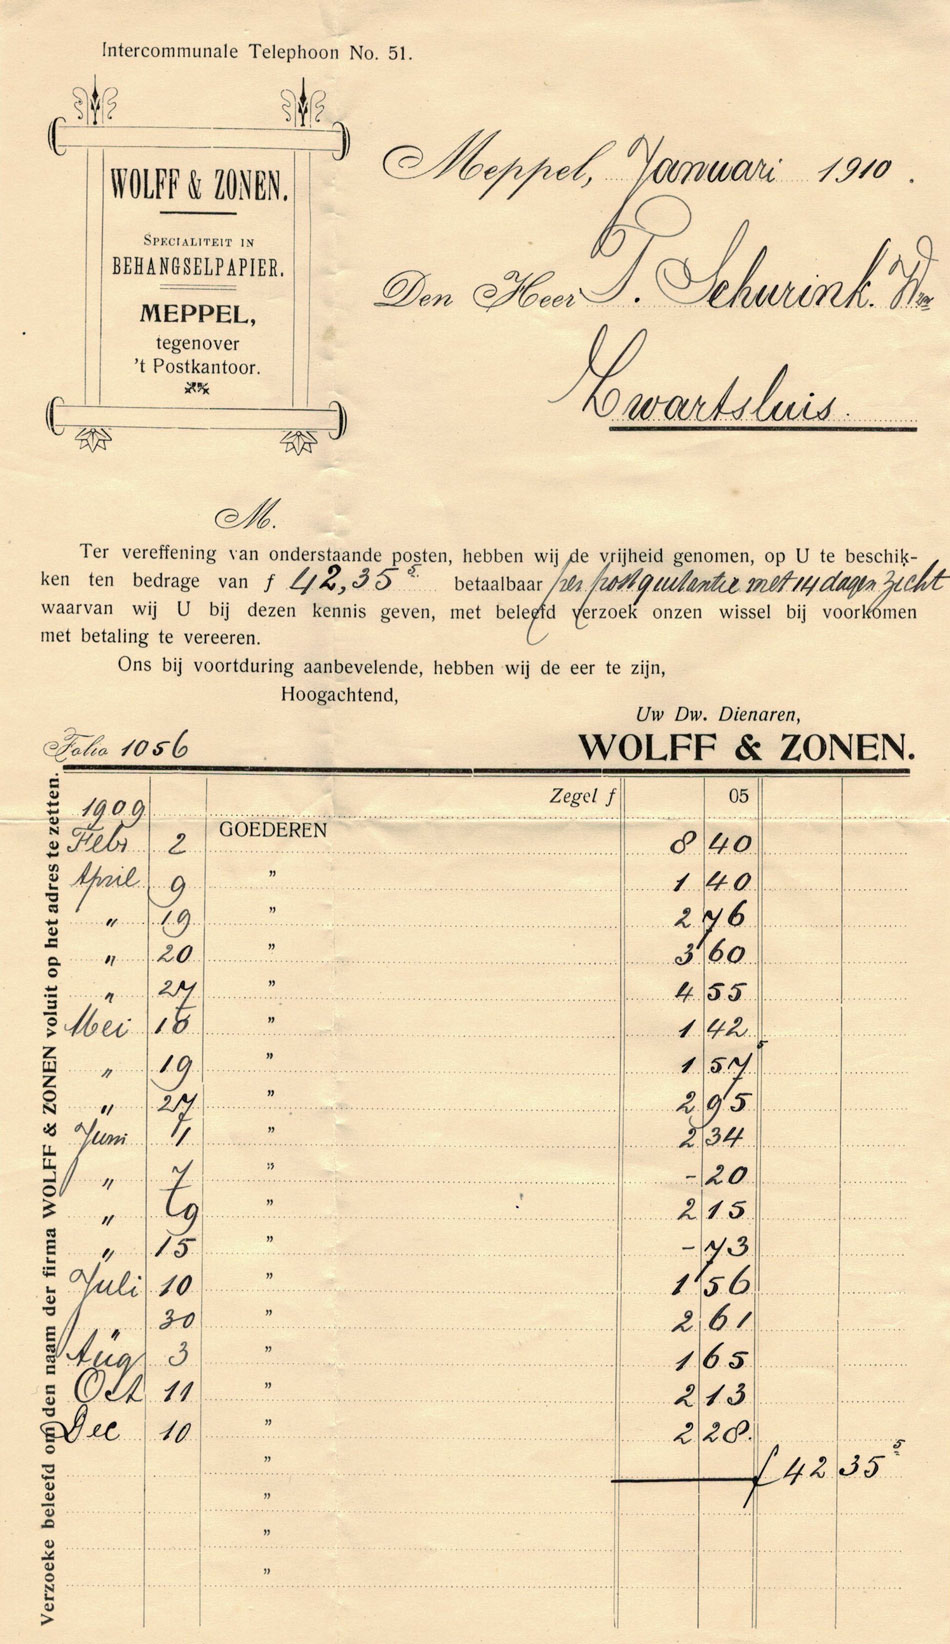 Intercommunale Telephoon No. 51.
WOLFF & ZONEN.
SPECIALITEIT IN
BEHANGSELPAPIER.
MEPPEL,
tegenover
't Postkantoor.
Meppel, Januari 1910.
Den Heer T. Schurink. Wzn
Zwartsluis.
M.
Ter vereffening van onderstaande posten, hebben wij de vrijheid genomen, op U te beschik-
ken ten bedrage van f 42,35⁵ betaalbaar per postquitantie met 14 dagen zicht
waarvan wij U bij dezen kennis geven, met beleefd verzoek onzen wissel bij voorkomen
met betaling te vereeren.
Ons bij voortduring aanbevelende, hebben wij de eer te zijn,
Hoogachtend,
Uw Dw. Dienaren,
Folio 1056
WOLFF & ZONEN.
Verzoeke beleefd om den naam der firma WOLFF & ZONEN voluit op het adres te zetten.
Zegel f 05
1909
Febr 2 GOEDEREN 8 40
April 9 " 1 40
" 19 " 2 76
" 20 " 3 60
" 27 " 4 55
Mei 10 " 1 42
" 19 " 1 57⁵
" 27 " 2 95
Juni 1 " 2 34
" 7 " - 20
" 9 " 2 15
" 15 " - 73
Juli 10 " 1 56
" 30 " 2 61
Aug 3 " 1 65
Oct 11 " 2 13
Dec 10 " 2 28.
" f 42 35⁵
"
"
"